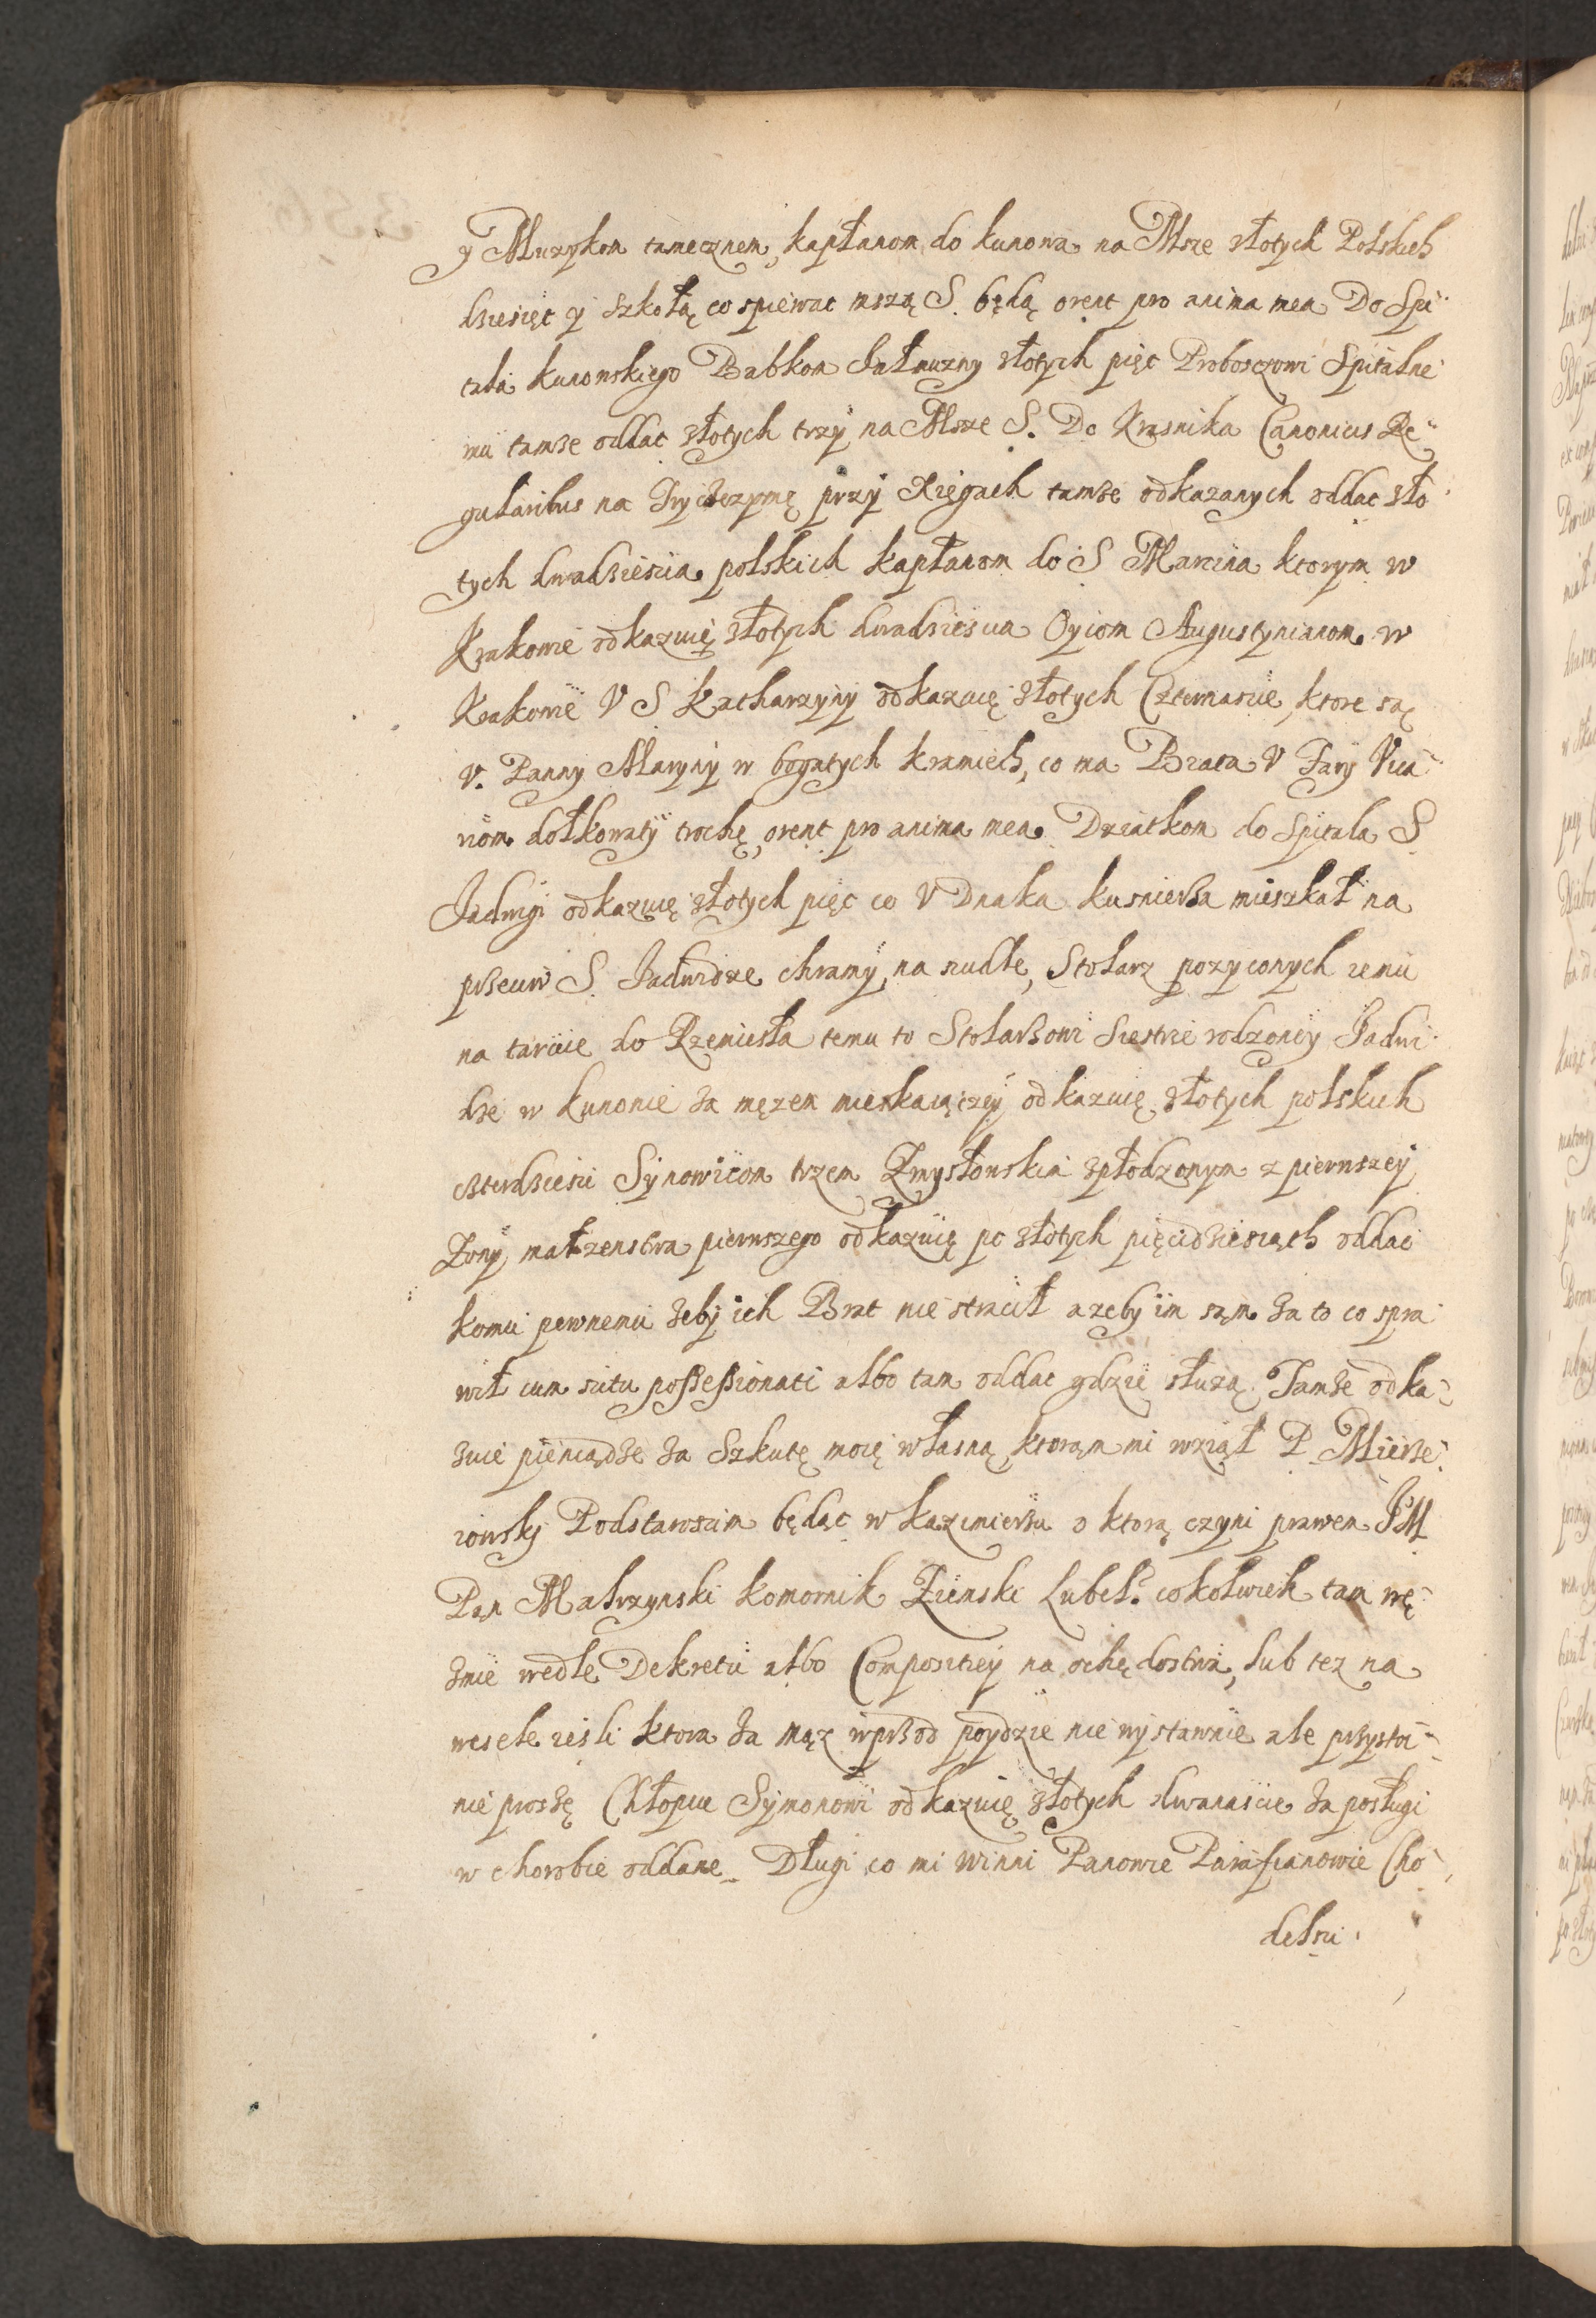 y Muzykom tamecznem, kapłanom do kunowa na Msze złotych Polskich
dziesięc y szkołą co spiewac mszą S. będą orent pro anima mea Do Spi
tala kunowskiego Babkom Jałmuzny złotych pięc Proboszczowi Spitalne
mu tamze oddac złotych trzy na Msze S. Do Krasnika Canonicis Re
gularibus na przy Xięgach tamze odkazanych oddac zło
tych dwadziescia polskich kapłanom do S Marcina ktorym w
Krakowie odkazuię złotych dwadziescia Oyiom Augustynianom w
Krakowie V S Katharzyny odkazuię złotych Czternascie, ktore są
V. Panny Maryny w bogatych kramiech, co ma Brata V Fary Vica
riom dołkowaty trochę, orent pro anima mea. Dziatkom do Spitala S
Jadwigi odkazuię złotych pięc co V Dnaka kusnierza mieszkał na
przeciw S. Jadwidze chramy, na sudle, Stolarz pozyconych iemu
na tarcice do Rzemiesła temu to Stolarzowi Siestrze rodzoney Jadwi
dze w kunowie za męzem mieskaiączey odkazuię złotych polskich
czterdziesci Synowicom trzem Zmysłowskim zpłodzonym z pierwszey
Zony małzenstwa pierwszego odkazuię po złotych pięcidziesiąth oddac
komu pewnemu zeby ich Brat nie stracił a zeby im sam za to co spra
wił cum scitu possessionati albo tam oddac gdzie słuzą. Tamze odka
zuie pieniądze za Szkutę moię własną, ktorąm mi wziął P. Mierze
iowsky Podstaroscim będąc w kazimierzu o ktorą czyni prawem JM
Pan Malrzynski komornik Ziemski Lubel: cokolwiek tam wę
zmie wedle Dekretu albo Compositiey na ochędostwa, lub tez na
wesele iesli ktora za mąz wprzod poydzie nie wystawnie ale przystoi
nie proszę Chłopcu Symonowi odkazuię złotych dwanascie za posługi
w chorobie oddane. Długi co mi winni Panowie Parafianowie Cho
delsci